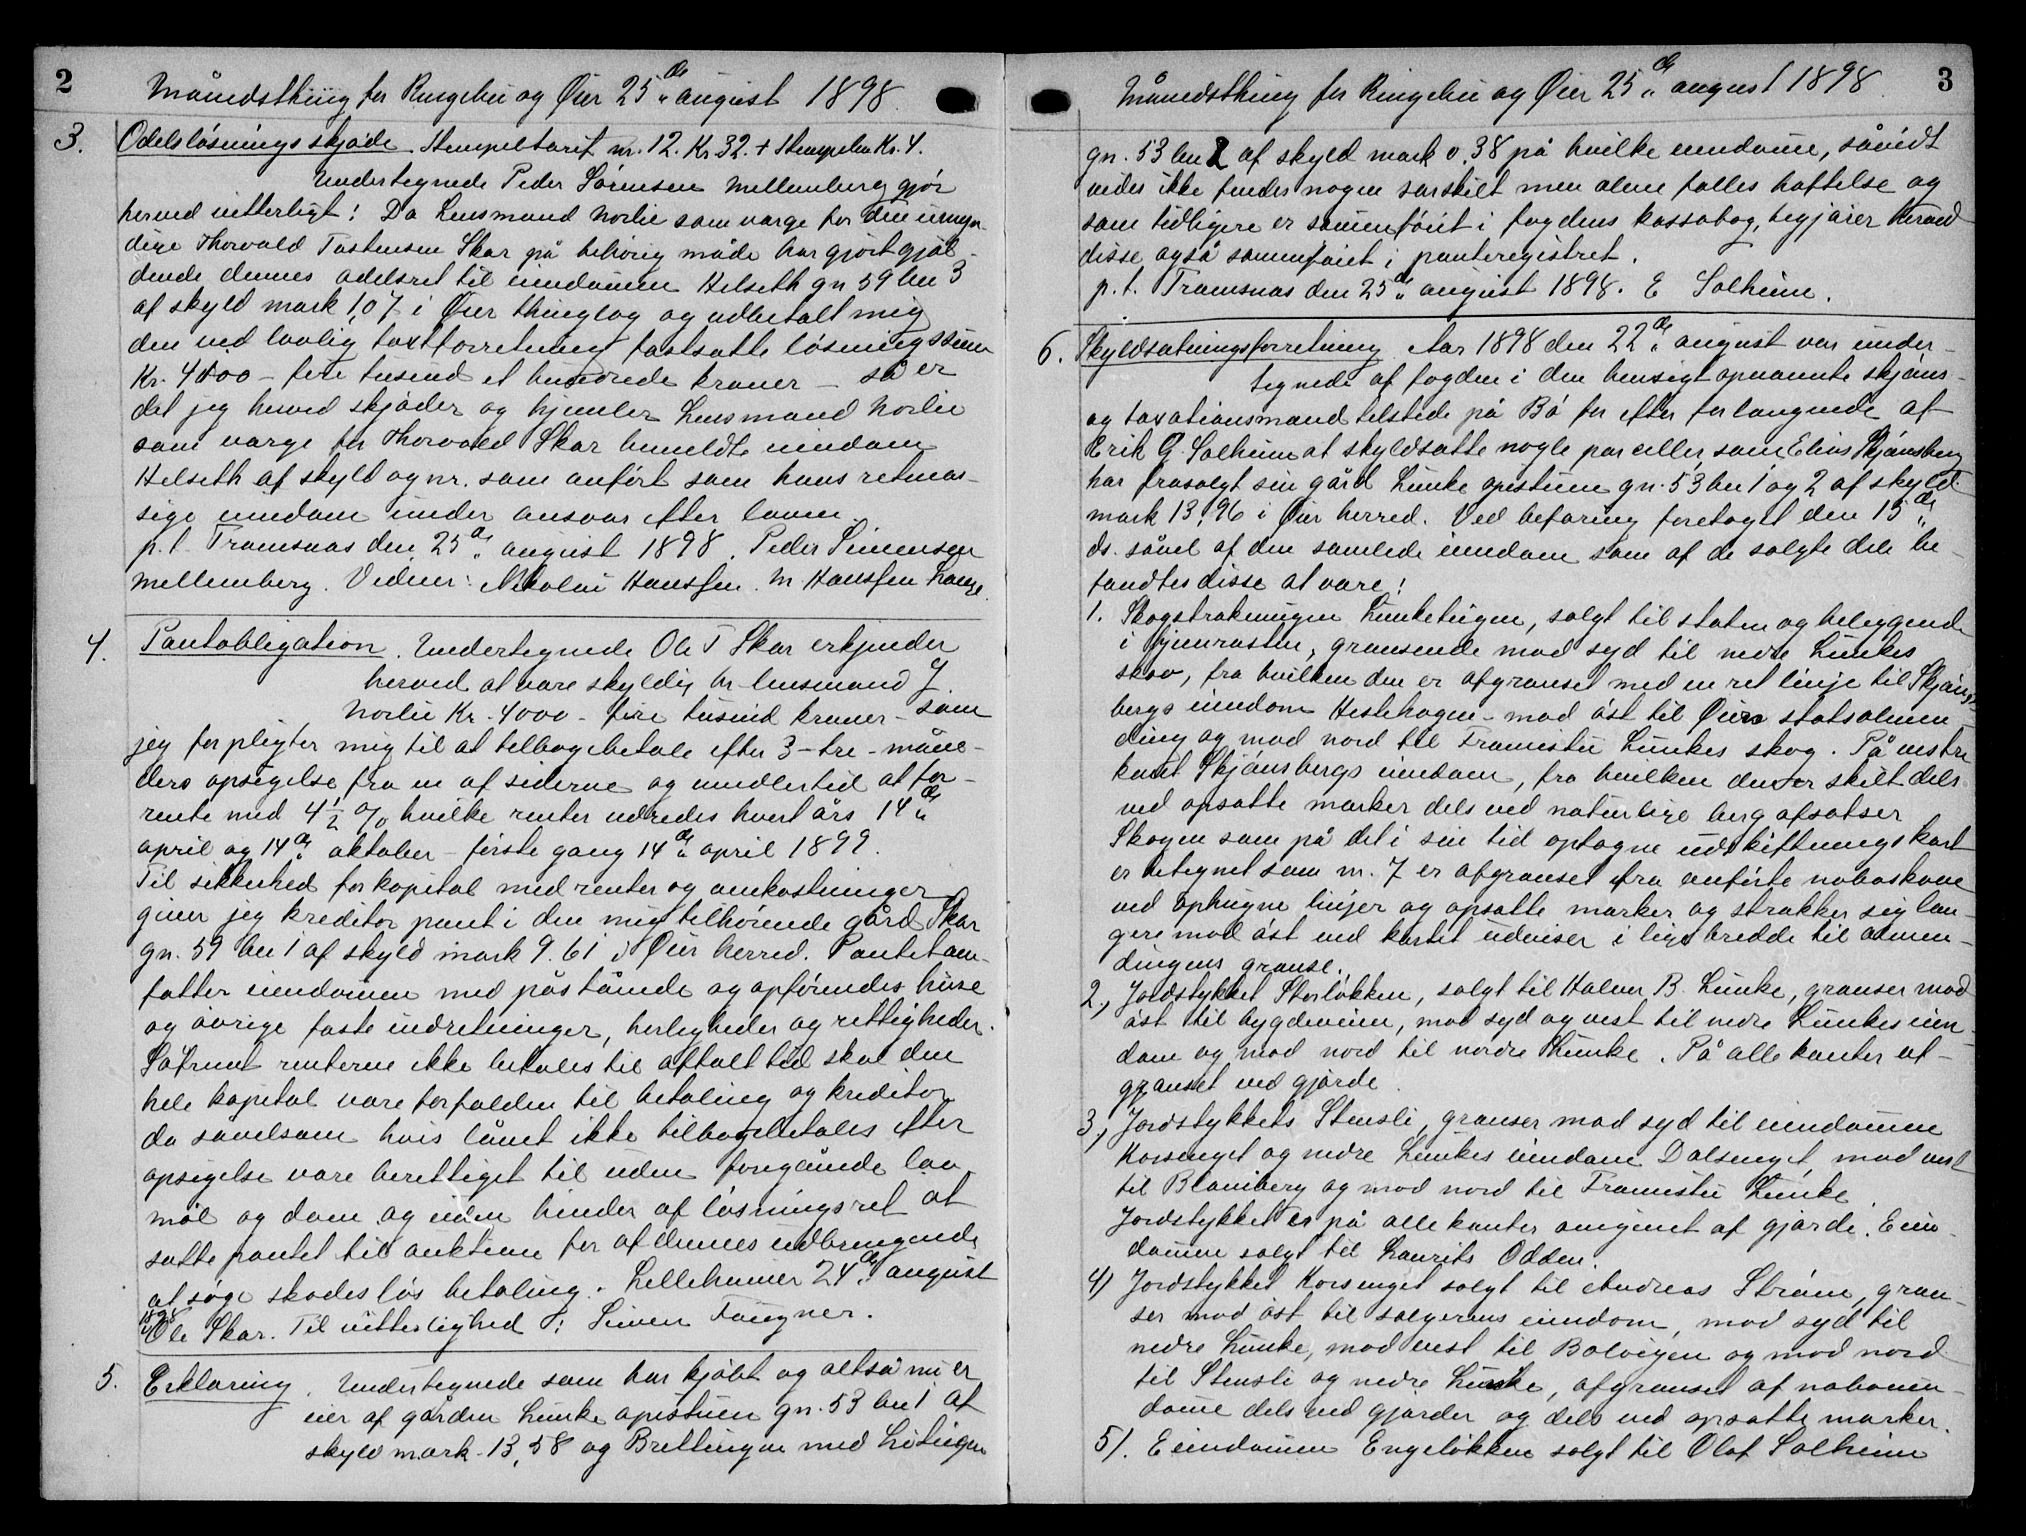 2
Månedsthing for Ringebu og Øier 25de august 1898.
3. Odelsløsningsskjøde. Stempeltarif nr. 12. Kr 32. + Stempelen Kr. 4.
Undertegnede Peder Sørensen Mellemberg gjør
herved vitterligt: Da Lensmand Norlie som værge for den umyn-
dige Thorvald Tostensen Skar på behørig måde har gjort gjæl-
dende dennes odelsret til eiendommen Helseth gn 59 bn 3
af skyld mark 1,07 i Øier thinglag og udbetalt mig
den ved lovlig taxtforretning fastsatte løsningssum
Kr. 4100 - fire tusend et hundrede kroner - så er
det jeg herved skjøder og hjemler Lensmand Norlie
som værge for Thorvald Skar bemeldte eiendom
Helseth af skyld og nr. som anført som hans retmæs-
sige eiendom under ansvar efter loven.
p.t. Tramsnæs den 25de august 1898. Peder Simensen
Mellemberg. Vidner: Nikolai Hanssen. M. Hanssen Lange.
4. Pantobligation. Undertegnede Ole T Skar erkjender
herved at være skyldig hr lensmand J.
Norlie Kr. 4000 - fire tusind kroner - som
jeg forpligter mig til at tilbagebetale efter 3 - tre - måne-
ders opsigelse fra en af siderne og imidlertid at for-
rente med 4 1/2 % hvilke renter udredes hvert års 14de
april og 14de oktober - første gang 14de april 1899.
Til sikkerhed for kapital med renter og omkostninger
giver jeg kreditor pant i den mig tilhørende gård Skar
gn. 59 bn 1 af skyld mark 9.61 i Øier herred. Pantet om-
fatter eiendommen med påstående og opførendes huse
og øvrige faste indretninger, herligheder og rettigheder.
Såfremt renterne ikke betales til aftalt tid skal den
hele kapital være forfalden til betaling og kreditor
da såvelsom hvis lånet ikke tilbagebetales efter
opsigelse være berettiget til uden foregående lov
mål og dom og uden hinder af løsningsret at
sætte pantet til auktion for af dennes udbringende
at søge skadesløs betaling. Lillehammer 24de august
1898
Ole Skar. Til vitterlighed: Simen Fougner.
5. Erklæring. Undertegnede som har kjøbt og altså nu er
eier af gården Lunke opistuen gn. 53 bn 1 af
skyld mark 13,58 og Brettingen med Liteigen
3
Månedsthing for Ringebu og Øier 25de august 1898.
gn. 53 bn 2 af skyld mark 0.38 på hvilke eiendomme, såvidt
vides ikke findes nogen særskilt men alene fælles hæftelse og
som tidligere er sammenføiet i fogdens kassabog, begjærer herved
disse også sammføiet i panteregistret.
p.t. Tramsnæs den 25de august 1898. E Solheim.
6. Skyldsætningsforretning. Aar 1898 den 22de august var under-
tegnede af fogden i den hensigt opnævnte skjøns-
og taxationsmænd tilstede på Bø for efter forlangende af
Erik G. Solheim at skyldsætte nogle parceller som Elias Skjønsberg
har frasolgt sin gård Lunke opistuen gn. 53 bn 1 og 2 af skyld
mark 13,96 i Øier herred. Ved befaring foretaget den 15de
ds. såvel af den samlede eiendom som af de solgte dele be-
fandtes disse at være:
1. Skogstrækningen Lunketeigen, solgt til staten og beliggende
i Hjemrasten, grænsende mod syd til nedre Lunkes
skov, fra hvilken den er afgrænset med en ret linje til Skjøns-
bergs eiendom Hestehagen - mod øst til Øiers statsalmen-
ding og mod nord til Framistu Lunkes skog. På vestre
kant Skjønsbergs eiendom, fra hvilken den er skilt dels
ved opsatte mærker dels ved naturlige berg afsatser
Skogen som på det i sin tid optagne udskiftningskart
er betegnet som nr. 7 er afgrænset fra anførte naboskove
ved ophugne linjer og opsatte mærker og strækker sig læn-
gere mod øst end kartet udviser i lige bredde til almen-
dingens grænse.
2, Jordstykket Storløkken, solgt til Halvor B. Lunke, grænser mod
øst til bygdeveien, mod syd og vest til nedre Lunkes eien-
dom og mod nord til nordre Lunke. På alle kanter af-
grænset ved gjærde.
3, Jordstykkets Stensli, grænser mod syd til eiendommen
Korsenget og nedre Lunkes eiendom Dalsenget, mod vest
til Blaaberg og mod nord til Framistu Lunke
Jordstykket er på alle kanter omgivet af gjærde. Eien-
dommen solgt til Laurits Odden.
4) Jordstykket Korsenget solgt til Andreas Strøm, græn-
ser mod øst til sælgerens eiendom, mod syd til
nedre Lunke, mod vest til Bolvigen og mod nord
til Stensli og nedre Lunke, afgrænset af naboeien-
domme dels ved gjærder og dels ved opsatte mærker.
5). Eiendommen Engeløkken solgt til Olaf Solheim